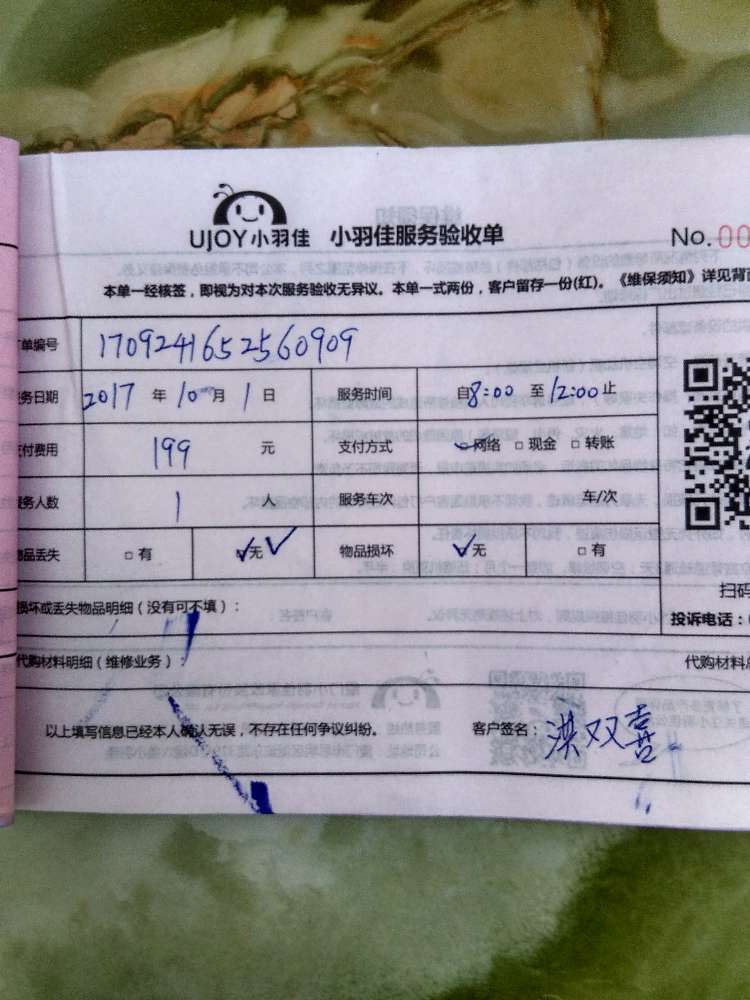 UJOY小羽佳 小羽佳服务验收单
No.00
本单一经核签，即视为对本次服务验收无异议。本单一式两份，客户留存一份(红)。《维保须知》详见背面
订单编号 1709241652560909
服务日期 2017 年 10 月 1 日 服务时间 自8:00 至12:00止
支付费用 199 元 支付方式 网络 □现金 □转账
服务人数 1 人 服务车次 车/次
物品丢失 □有 ☑无✓ 物品损坏 ☑无 □有
扫码
损坏或丢失物品明细（没有可不填）：
投诉电话：
代购材料明细（维修业务）：
代购材料总
以上填写信息已经本人确认无误，不存在任何争议纠纷。 客户签名：洪双喜